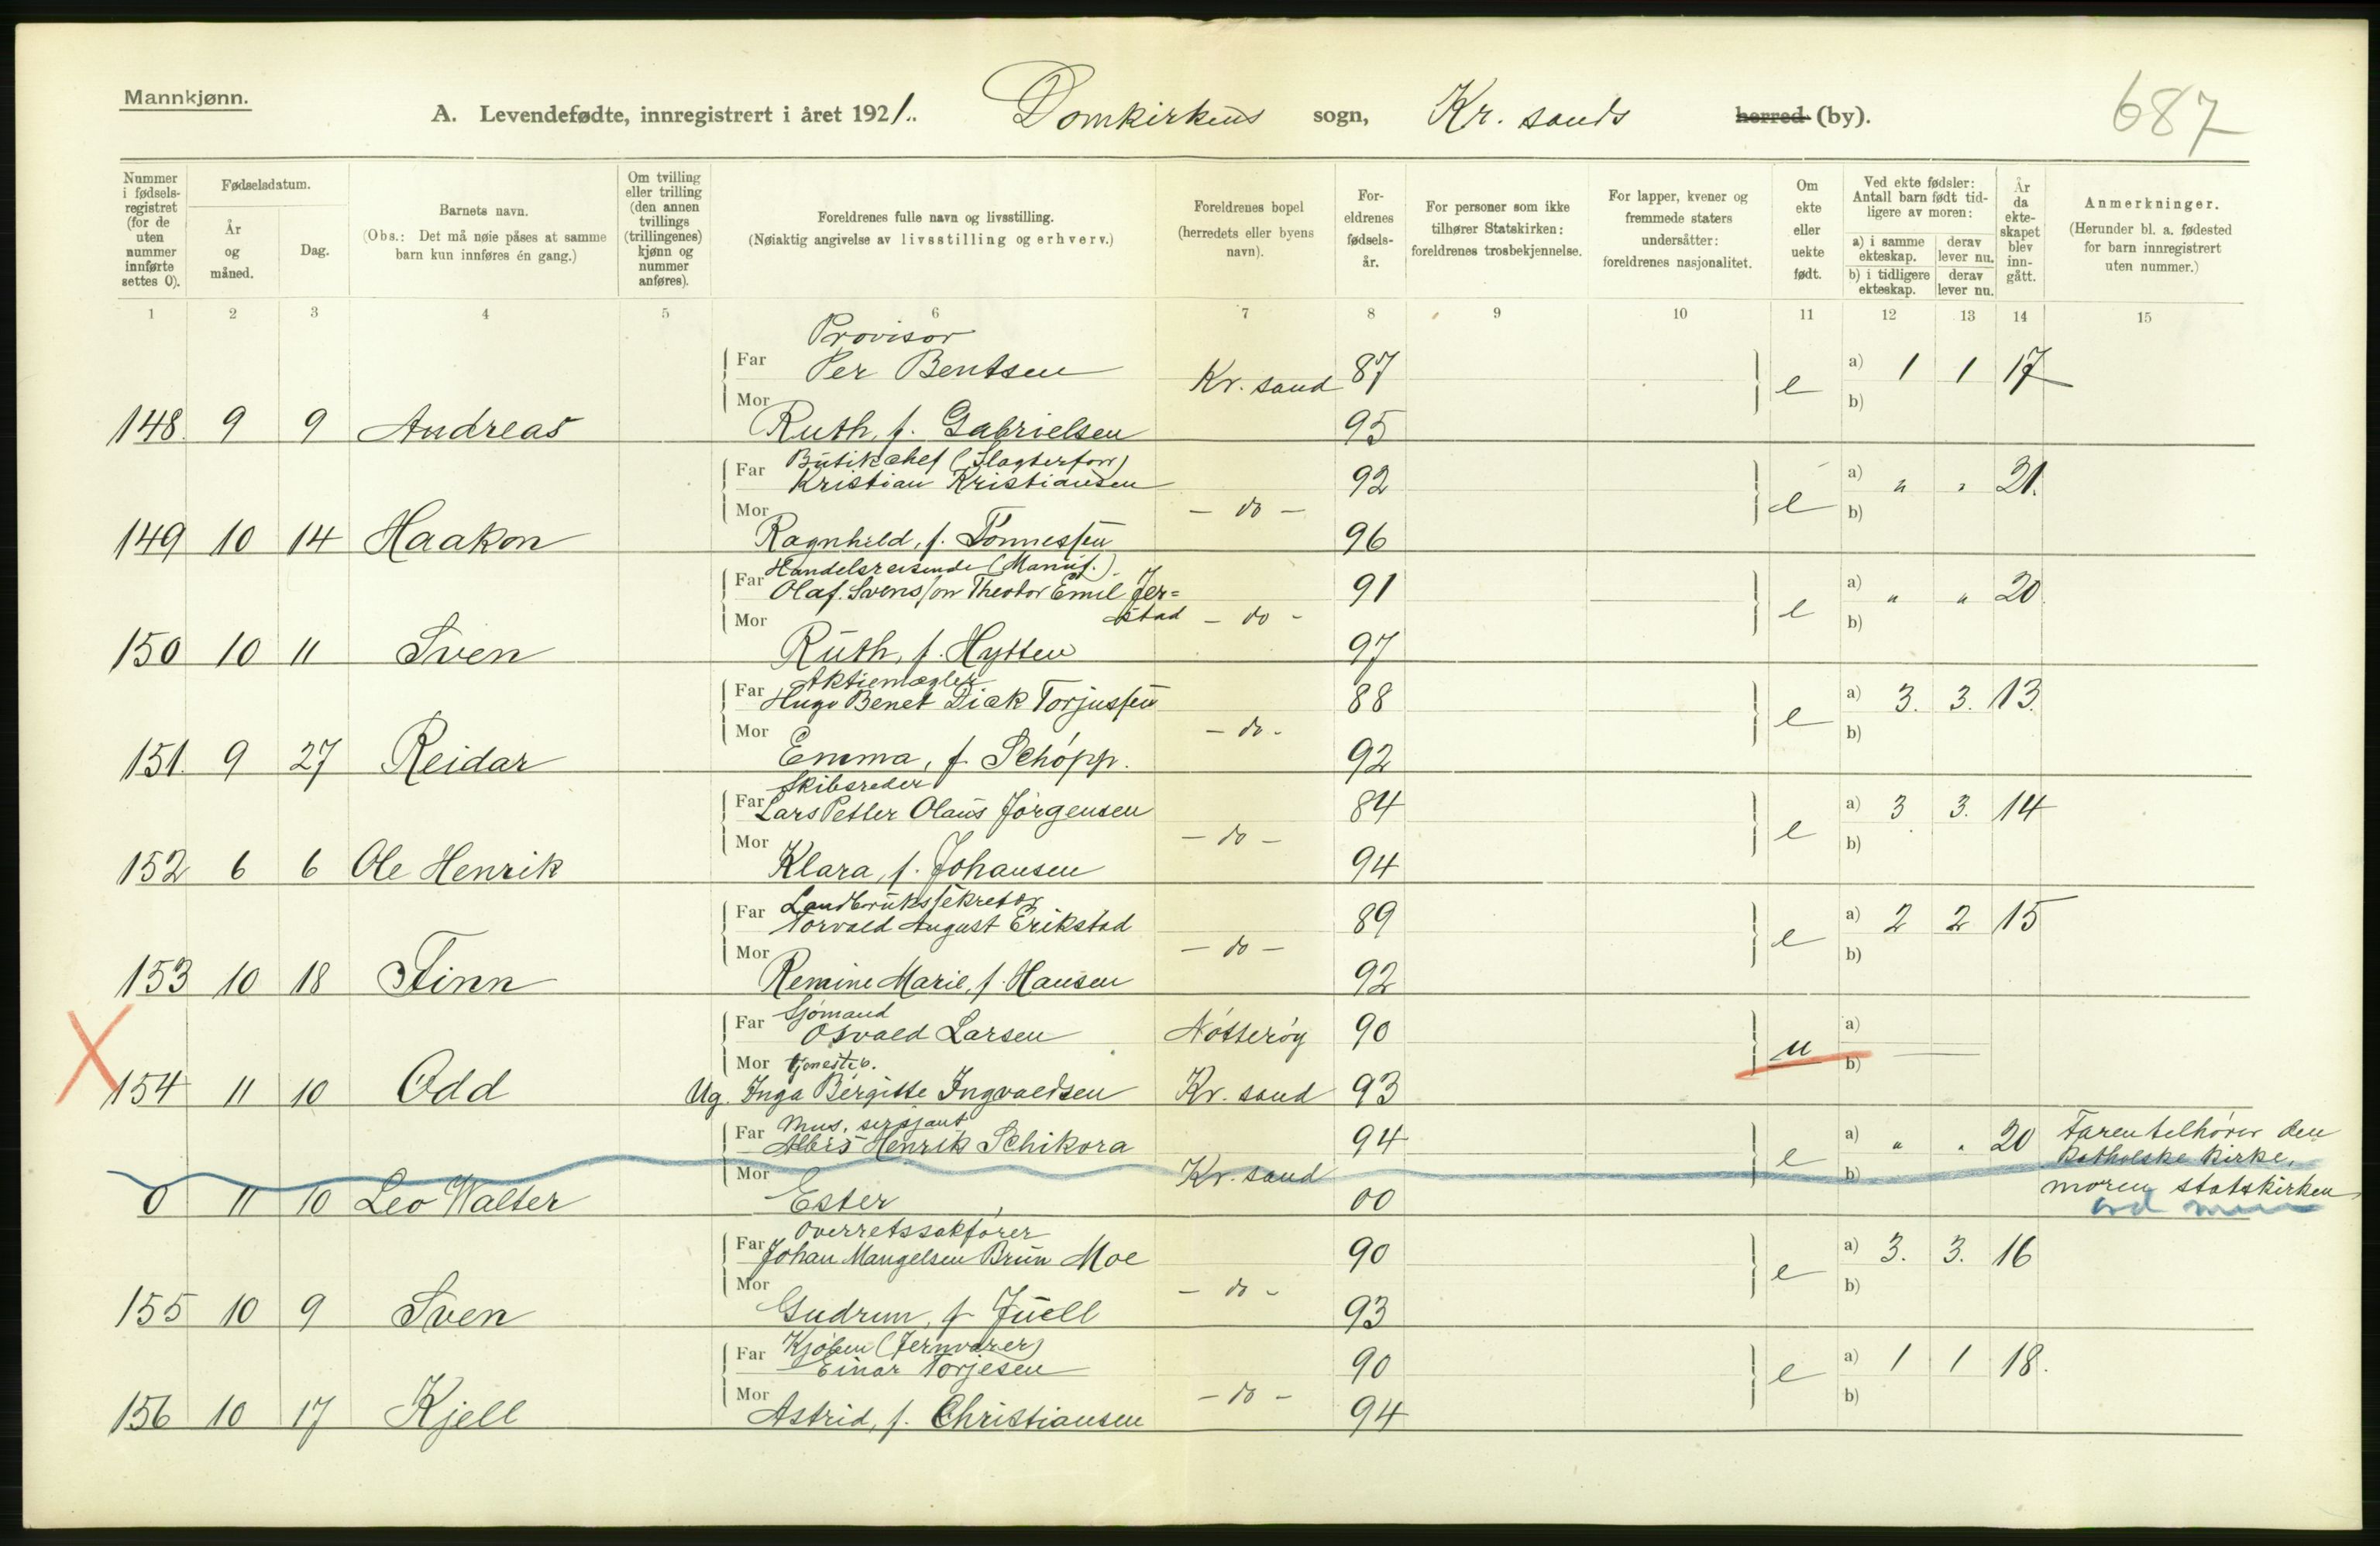 Mannkjønn.
A. Levendefødte, innregistrert i året 1921. Domkirkens sogn, Kr. sands herred (by). 687
Nummer i fødselsregistret (for de uten nummer innførte settes 0).
Fødselsdatum.
År og måned.
Dag.
Barnets navn.
(Obs.: Det må nøie påses at samme barn kun innføres én gang.)
Om tvilling eller trilling (den annen tvillings (trillingenes) kjønn og nummer anføres).
Foreldrenes fulle navn og livsstilling.
(Nøiaktig angivelse av livsstilling og erhverv.)
Foreldrenes bopel (herredets eller byens navn).
Foreldrenes fødselsår.
For personer som ikke tilhører Statskirken: foreldrenes trosbekjennelse.
For lapper, kvener og fremmede staters undersåtter: foreldrenes nasjonalitet.
Om ekte eller uekte født.
Ved ekte fødsler: Antall barn født tidligere av moren:
a) i samme ekteskap. derav lever nu.
b) i tidligere ekteskap. derav lever nu.
År da ekteskapet blev inngått.
Anmerkninger.
(Herunder bl. a. fødested for barn innregistrert uten nummer.)
1 2 3 4 5 6 7 8 9 10 11 12 13 14 15
Provisor
Far Per Bentsen Kr. sand 87 e a) 1 1 17
Mor b)
148 9 9 Andreas Ruth, f. Gabrielsen 95
Butikchef (Slagterforr)
Far Kristian Kristiansen 92 e a) " " 21.
Mor - do - b)
149 10 14 Haakon Ragnhild, f. Tønnessen 96
Handelsreisende (Manuf.)
Far Olaf Svensson Theodor Emil Jer= 91 e a) " " 20
Mor stad - do - b)
150 10 11 Sven Ruth, f. Hytten 97
Aktiemægler
Far Hugo Benet Dick Torjussen 88 e a) 3. 3. 13.
Mor - do - b)
151. 9 27 Reidar Emma, f. Schöpp. 92
Skibsreder
Far Lars Petter Olaus Jørgensen 84 e a) 3 3. 14
Mor - do - b)
152 6 6 Ole Henrik Klara, f. Johansen 94
Landbrukssekretær
Far Torvald August Erikstad 89 e a) 2 2 15
Mor - do - b)
153 10 18 Finn Remine Marie, f. Hansen 92
Sjømand
Far Osvald Larsen Nøtterøy 90 u a)
Mor tjenestep. b)
X 154 11 10 Odd Ug. Inga Birgitte Ingvaldsen Kr. sand 93
Mus. sersjant
Far Henrik Schikora 94 e a) " " 20 Faren tilhører den
Mor Kr. sand b) katholske kirke,
0 11 10 Leo Walter Ester 00 moren statskirken
Overretssakfører
Far Johan Mangelsen Brun Moe 90 e a) 3. 3. 16
Mor - do - b)
155 10 9 Sven Gudrun, f. Juell 93
Kjøbm (Jernvarer)
Far Einar Torjesen 90 e a) 1 1 18.
Mor - do - b)
156 10 17 Kjell Astrid, f. Christiansen 94